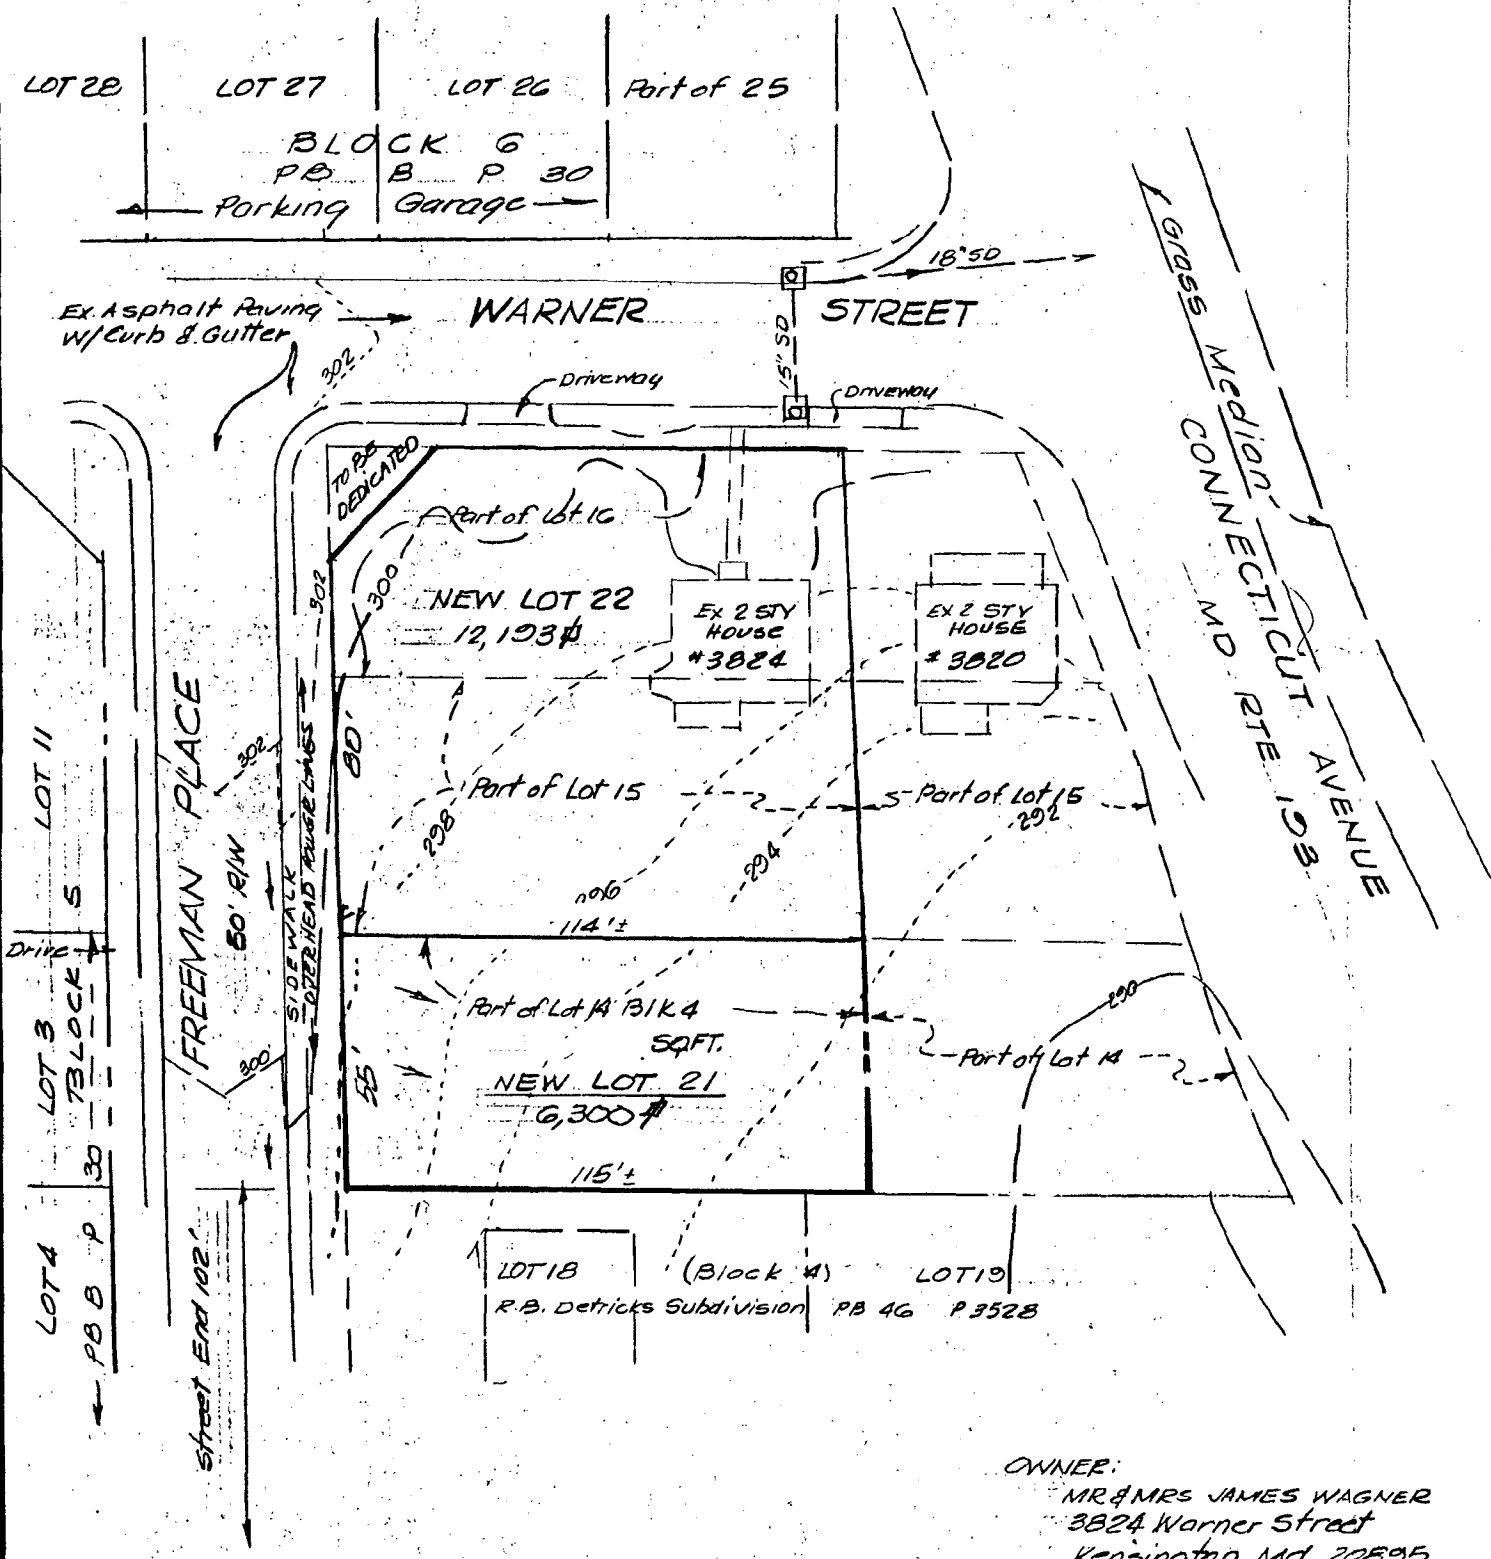 LOT 28
LOT 27
LOT 26
Part of 25
BLOCK 6
PB B P 30
Parking Garage
18" SD
Ex. Asphalt Paving
w/ Curb & Gutter
WARNER STREET
15" SD
302
Driveway
Driveway
Grass Median
CONNECTICUT AVENUE
MD. RTE 193
TO BE
DEDICATED
Part of Lot 16
300
302
NEW LOT 22
12,193⌗
Ex 2 STY
HOUSE
#3824
Ex 2 STY
HOUSE
#3820
LOT 11
FREEMAN PLACE
50' R/W
302
SIDEWALK
OVERHEAD POWER LINES
80'
Part of Lot 15
Part of Lot 15
298
294
292
296
114'±
Drive
LOT 3
BLOCK 5
Part of Lot 14 Blk 4
SQFT.
NEW LOT 21
6,300⌗
55'
300
290
Part of Lot 14
115'±
LOT 4
PB B P 30
Street End 102'
LOT 18
(Block 4)
LOT 19
R.B. Detricks Subdivision PB 46 P 3528
OWNER:
MR & MRS JAMES WAGNER
3824 Warner Street
Kensington, Md. 20895